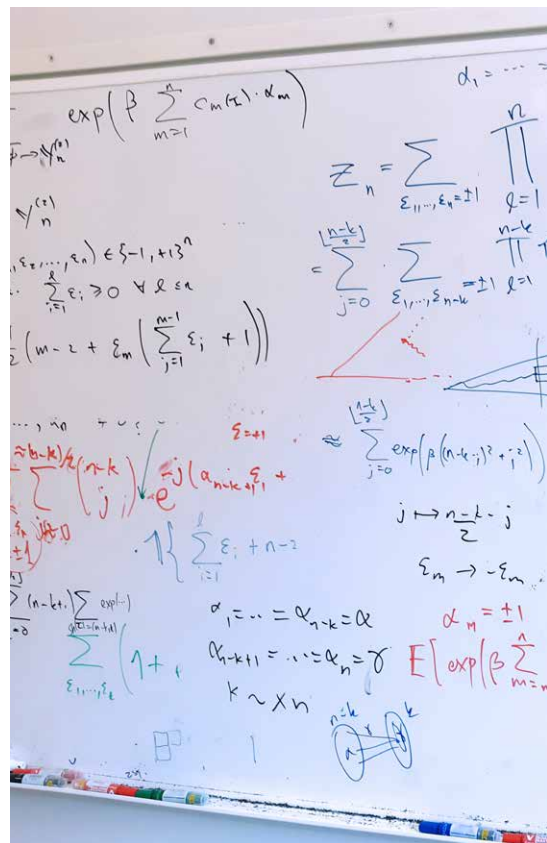 exp(β ∑_{m=1}^{n} c_m(τ)·α_m)
α_1 = ⋯ =
→ Y_n^{(2)}
Z_n = ∑_{ε_1,…,ε_n=±1} ∏_{l=1}^{n}
Y_n^{(2)}
ε_2,…,ε_n) ∈ {-1,+1}^n
∑_{i=1}^{l} ε_i ≥ 0 ∀ l ≤ n
= ∑_{j=0}^{⌊(n-k)/2⌋} ∑_{ε_1,…,ε_{n-k}=±1} ∏_{l=1}^{n-k}
(m-2 + ε_m (∑_{j=1}^{m-1} ε_j + 1))
ε=+1
≈ ∑_{j=0}^{⌊(n-k)/2⌋} exp(β((n-k-j)^2 + j^2))
∑ (n-k j) e^{-j(α_{n-k+1} ε_1 +
j ↦ (n-k)/2 - j
·1{ ∑_{i=1}^{l} ε_i + n-2
ε_m → -ε_m
∑ (n-k+1) ∑ exp(⋯)
α_1 = ⋯ = α_{n-k} = α
α_m = ±1
∑_{ε_1,…,ε_k} (1 +
α_{n-k+1} = ⋯ = α_n = γ
E[exp(β ∑^{n}
k ~ xn
n-k
k
γ
α